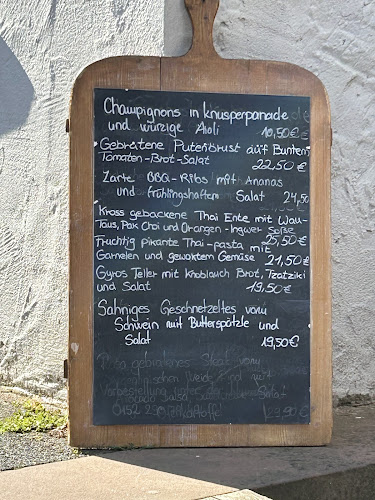 Champignons in Knusperpanade
und würzige Aioli 10,50€
Gebratene Putenbrust auf Bunten
Tomaten-Brot-Salat 22,50€
Zarte BBQ-Ribs mit Ananas
und frühlingshaftem Salat 24,50
Kross gebackene Thai Ente mit Wau-
Taus, Pak Choi und Orangen-Ingwer Soße
25,50€
Fruchtig pikante Thai-pasta mit
Garnelen und gewoktem Gemüse 21,50€
Gyros Teller mit Knoblauch Brot, Tzatziki
und Salat 19,50€
Sahniges Geschnetzeltes vom
Schwein mit Butterspätzle und
Salat 19,50€
vom
mit
Salat
23,90€